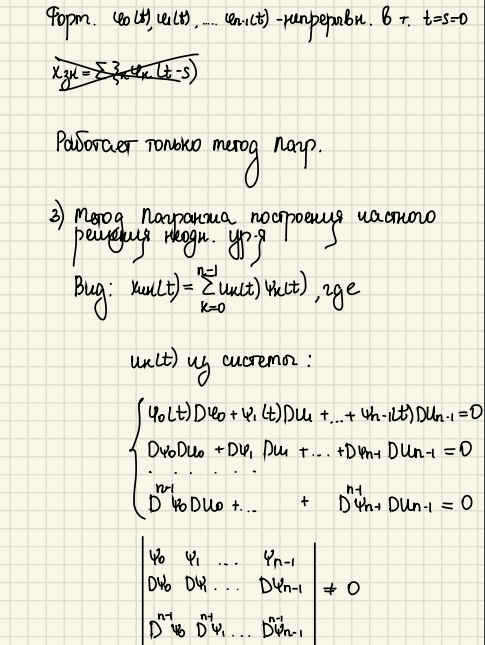 Форт. φ₀(t), φ₁(t), ..... φₙ₋₁(t) - непрерывн. в т. t=s=0
Работает только метод Лагр.
3) Метод Лагранжа построения частного
решения неодн. ур-я
Вид: xчн(t) = ∑ₖ₌₀ⁿ⁻¹ uₖ(t) ψₖ(t), где
uₖ(t) из системы:
ψ₀(t)Du₀ + ψ₁(t)Du₁ + ... + ψₙ₋₁(t)Duₙ₋₁ = 0
Dψ₀Du₀ + Dψ₁ Du₁ + ... + Dψₙ₋₁ Duₙ₋₁ = 0
. . . . . .
Dⁿ⁻¹ψ₀Du₀ + ... + Dⁿ⁻¹ψₙ₋₁ Duₙ₋₁ = 0
ψ₀ ψ₁ ... ψₙ₋₁
Dψ₀ Dψ₁ ... Dψₙ₋₁ ≠ 0
Dⁿ⁻¹ψ₀ Dⁿ⁻¹ψ₁ ... Dⁿ⁻¹ψₙ₋₁